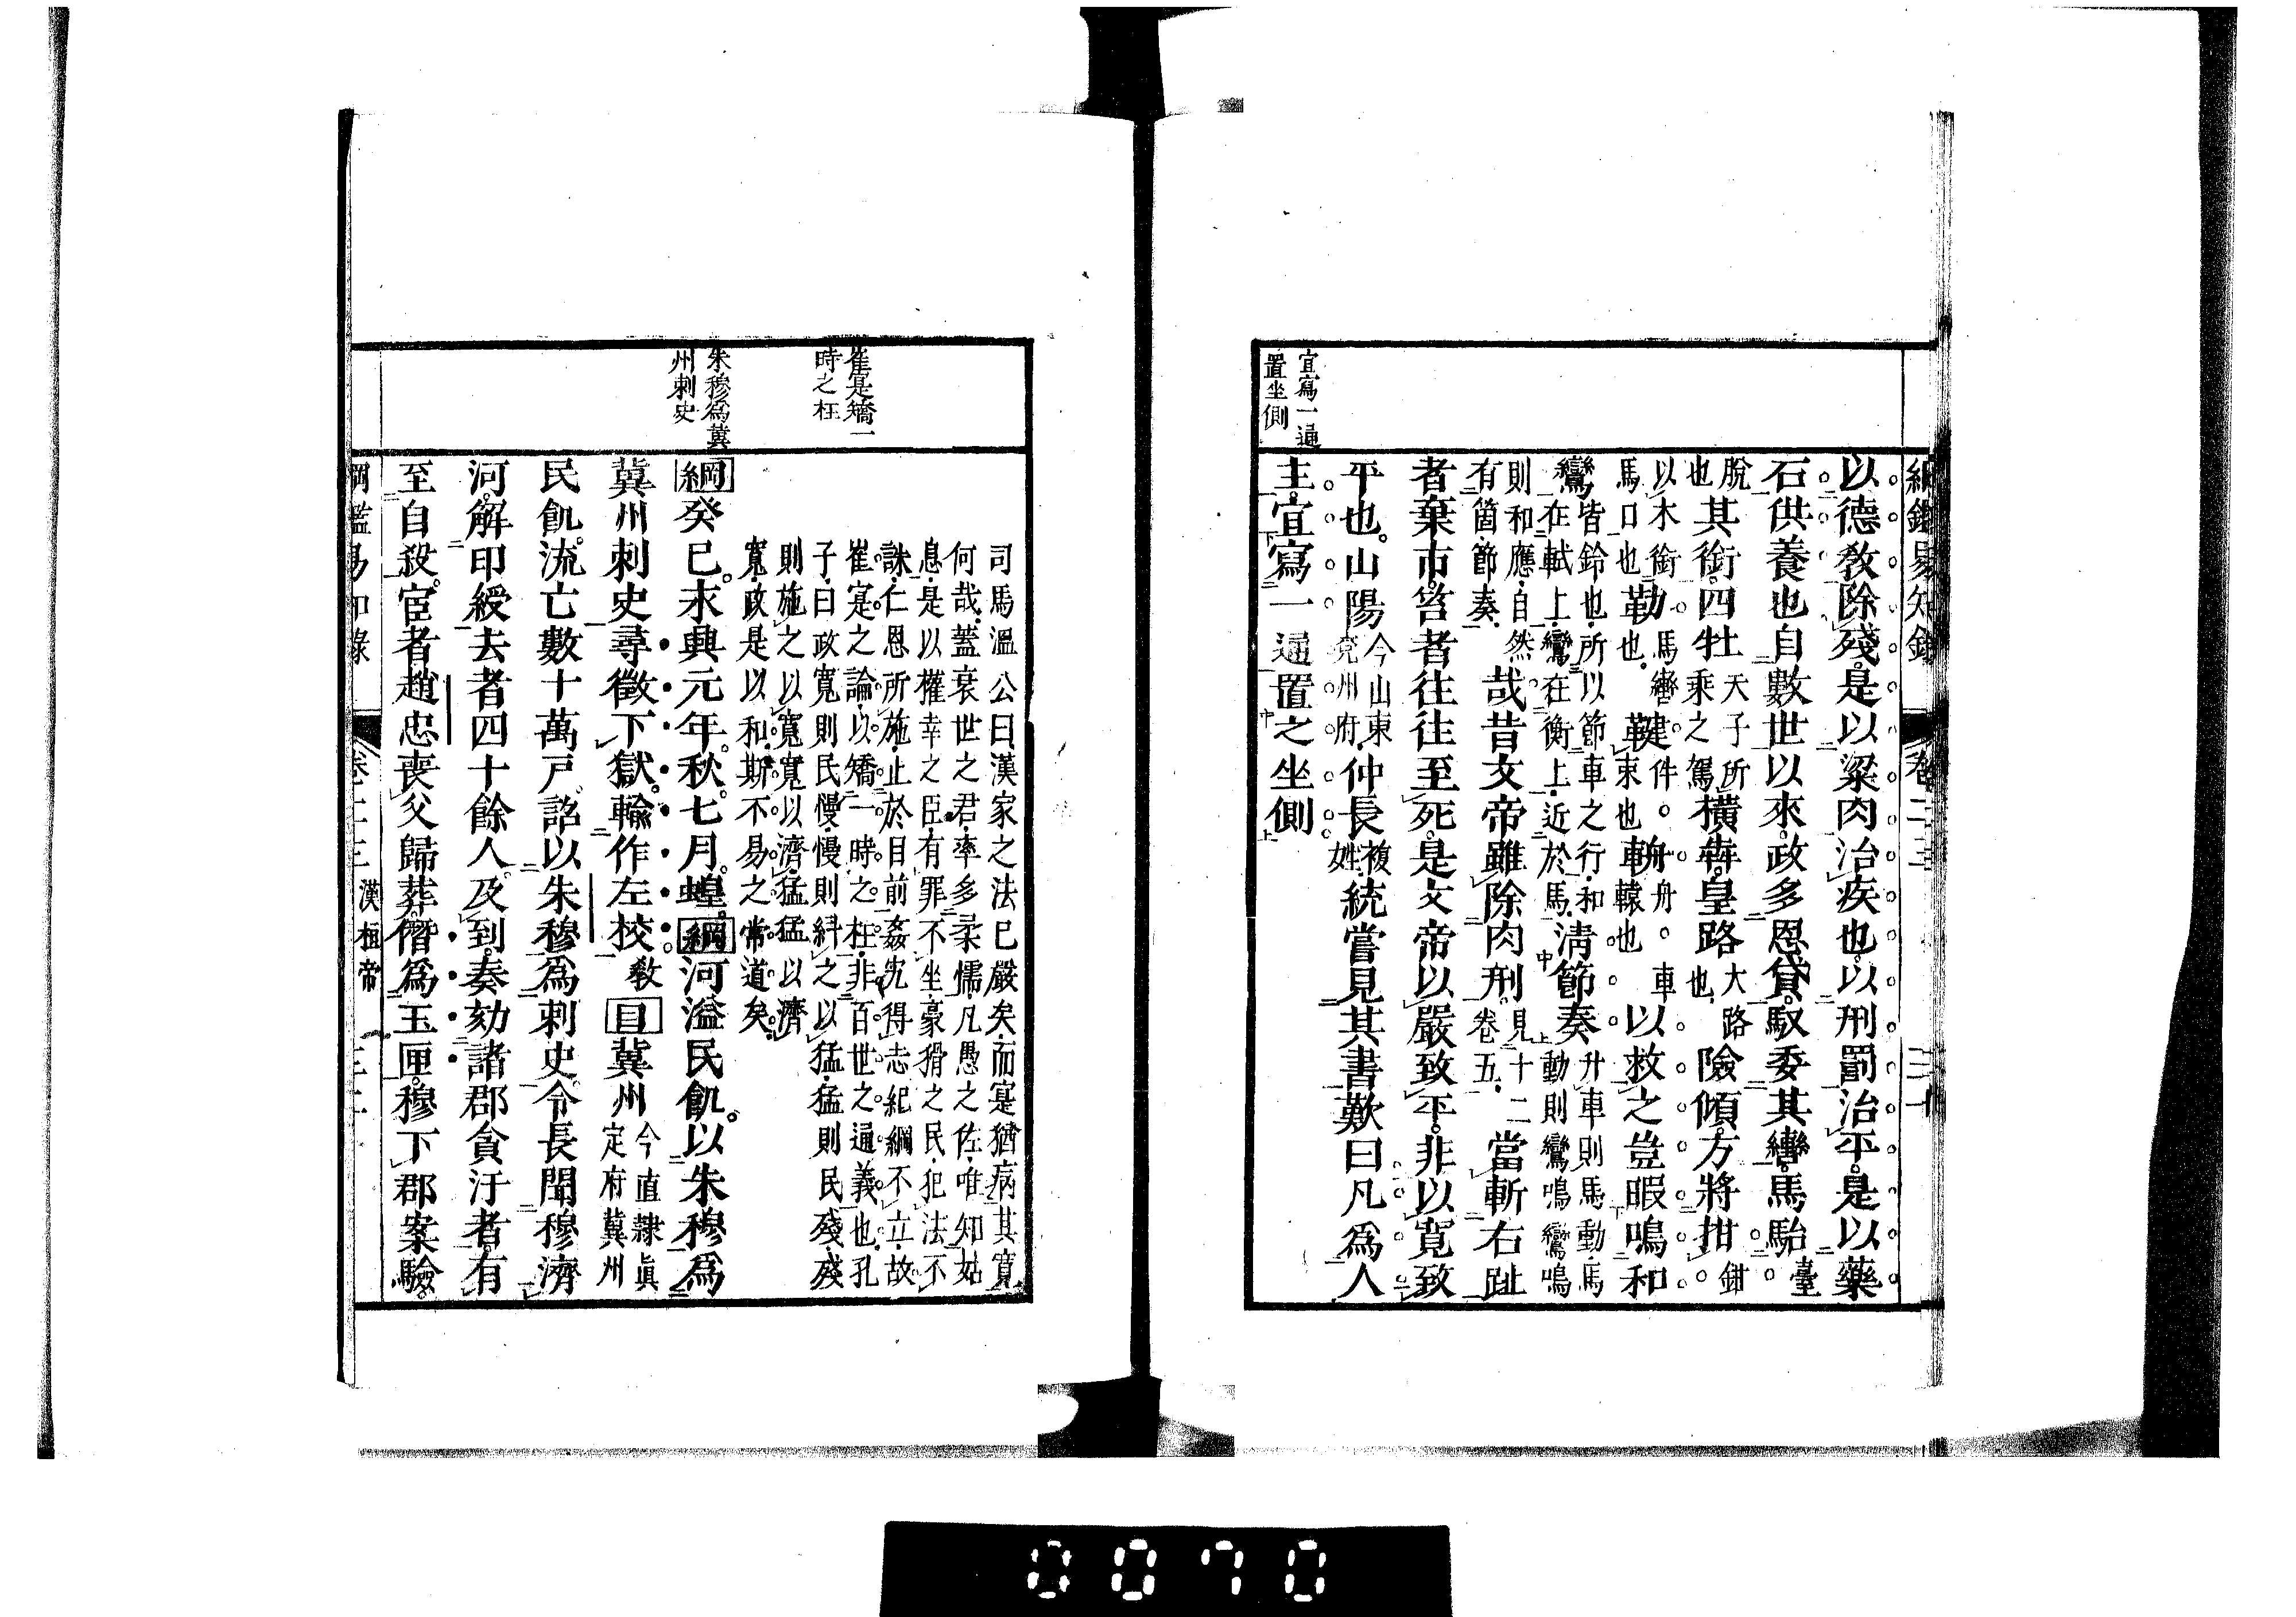 綱鑑易知錄 卷二三 三十
宜寫一通
置坐側
以德敎除殘是以粱肉治疾也以刑罰治平是以藥
石供養也自數世以來政多恩貸馭委其轡馬駘臺
脫
也其銜四牡天子所
乘之駕橫奔皇路大路
也險傾方將拑鉗
以木銜
馬口也勒馬轡
也鞬件。
束也輈舟。車
轅也以救之豈暇鳴和
鸞皆鈴也所以節車之行和
在軾上鸞在衡上近於馬淸節奏升車則馬動馬
動則鸞鳴鸞鳴
則和應自然
有箇節奏哉昔文帝雖除肉刑見十二
卷五當斬右趾
者棄市笞者往往至死是文帝以嚴致平非以寬致
平也山陽今山東
兗州府仲長複
姓統嘗見其書歎曰凡爲人
主宜寫一通置之坐側
崔寔矯一
時之枉
朱穆爲冀
州刺史
司馬溫公曰漢家之法已嚴矣而寔猶病其寬
何哉蓋衰世之君率多柔懦凡愚之佐唯知姑
息是以權幸之臣有罪不坐豪猾之民犯法不
誅仁恩所施止於目前姦宄得志紀綱不立故
崔寔之論以矯一時之枉非百世之通義也孔
子曰政寬則民慢慢則糾之以猛猛則民殘殘
則施之以寬寬以濟猛猛以濟
寬政是以和斯不易之常道矣
綱癸巳永興元年秋七月蝗綱河溢民飢以朱穆爲
冀州刺史尋徵下獄輸作左校敎目冀州今直隸眞
定府冀州
民飢流亡數十萬戶詔以朱穆爲刺史令長聞穆濟
河解印綬去者四十餘人及到奏劾諸郡貪汙者有
至自殺宦者趙忠喪父歸葬僭爲玉匣穆下郡案驗
綱鑑易知錄 卷二三 漢桓帝 三十一
0070